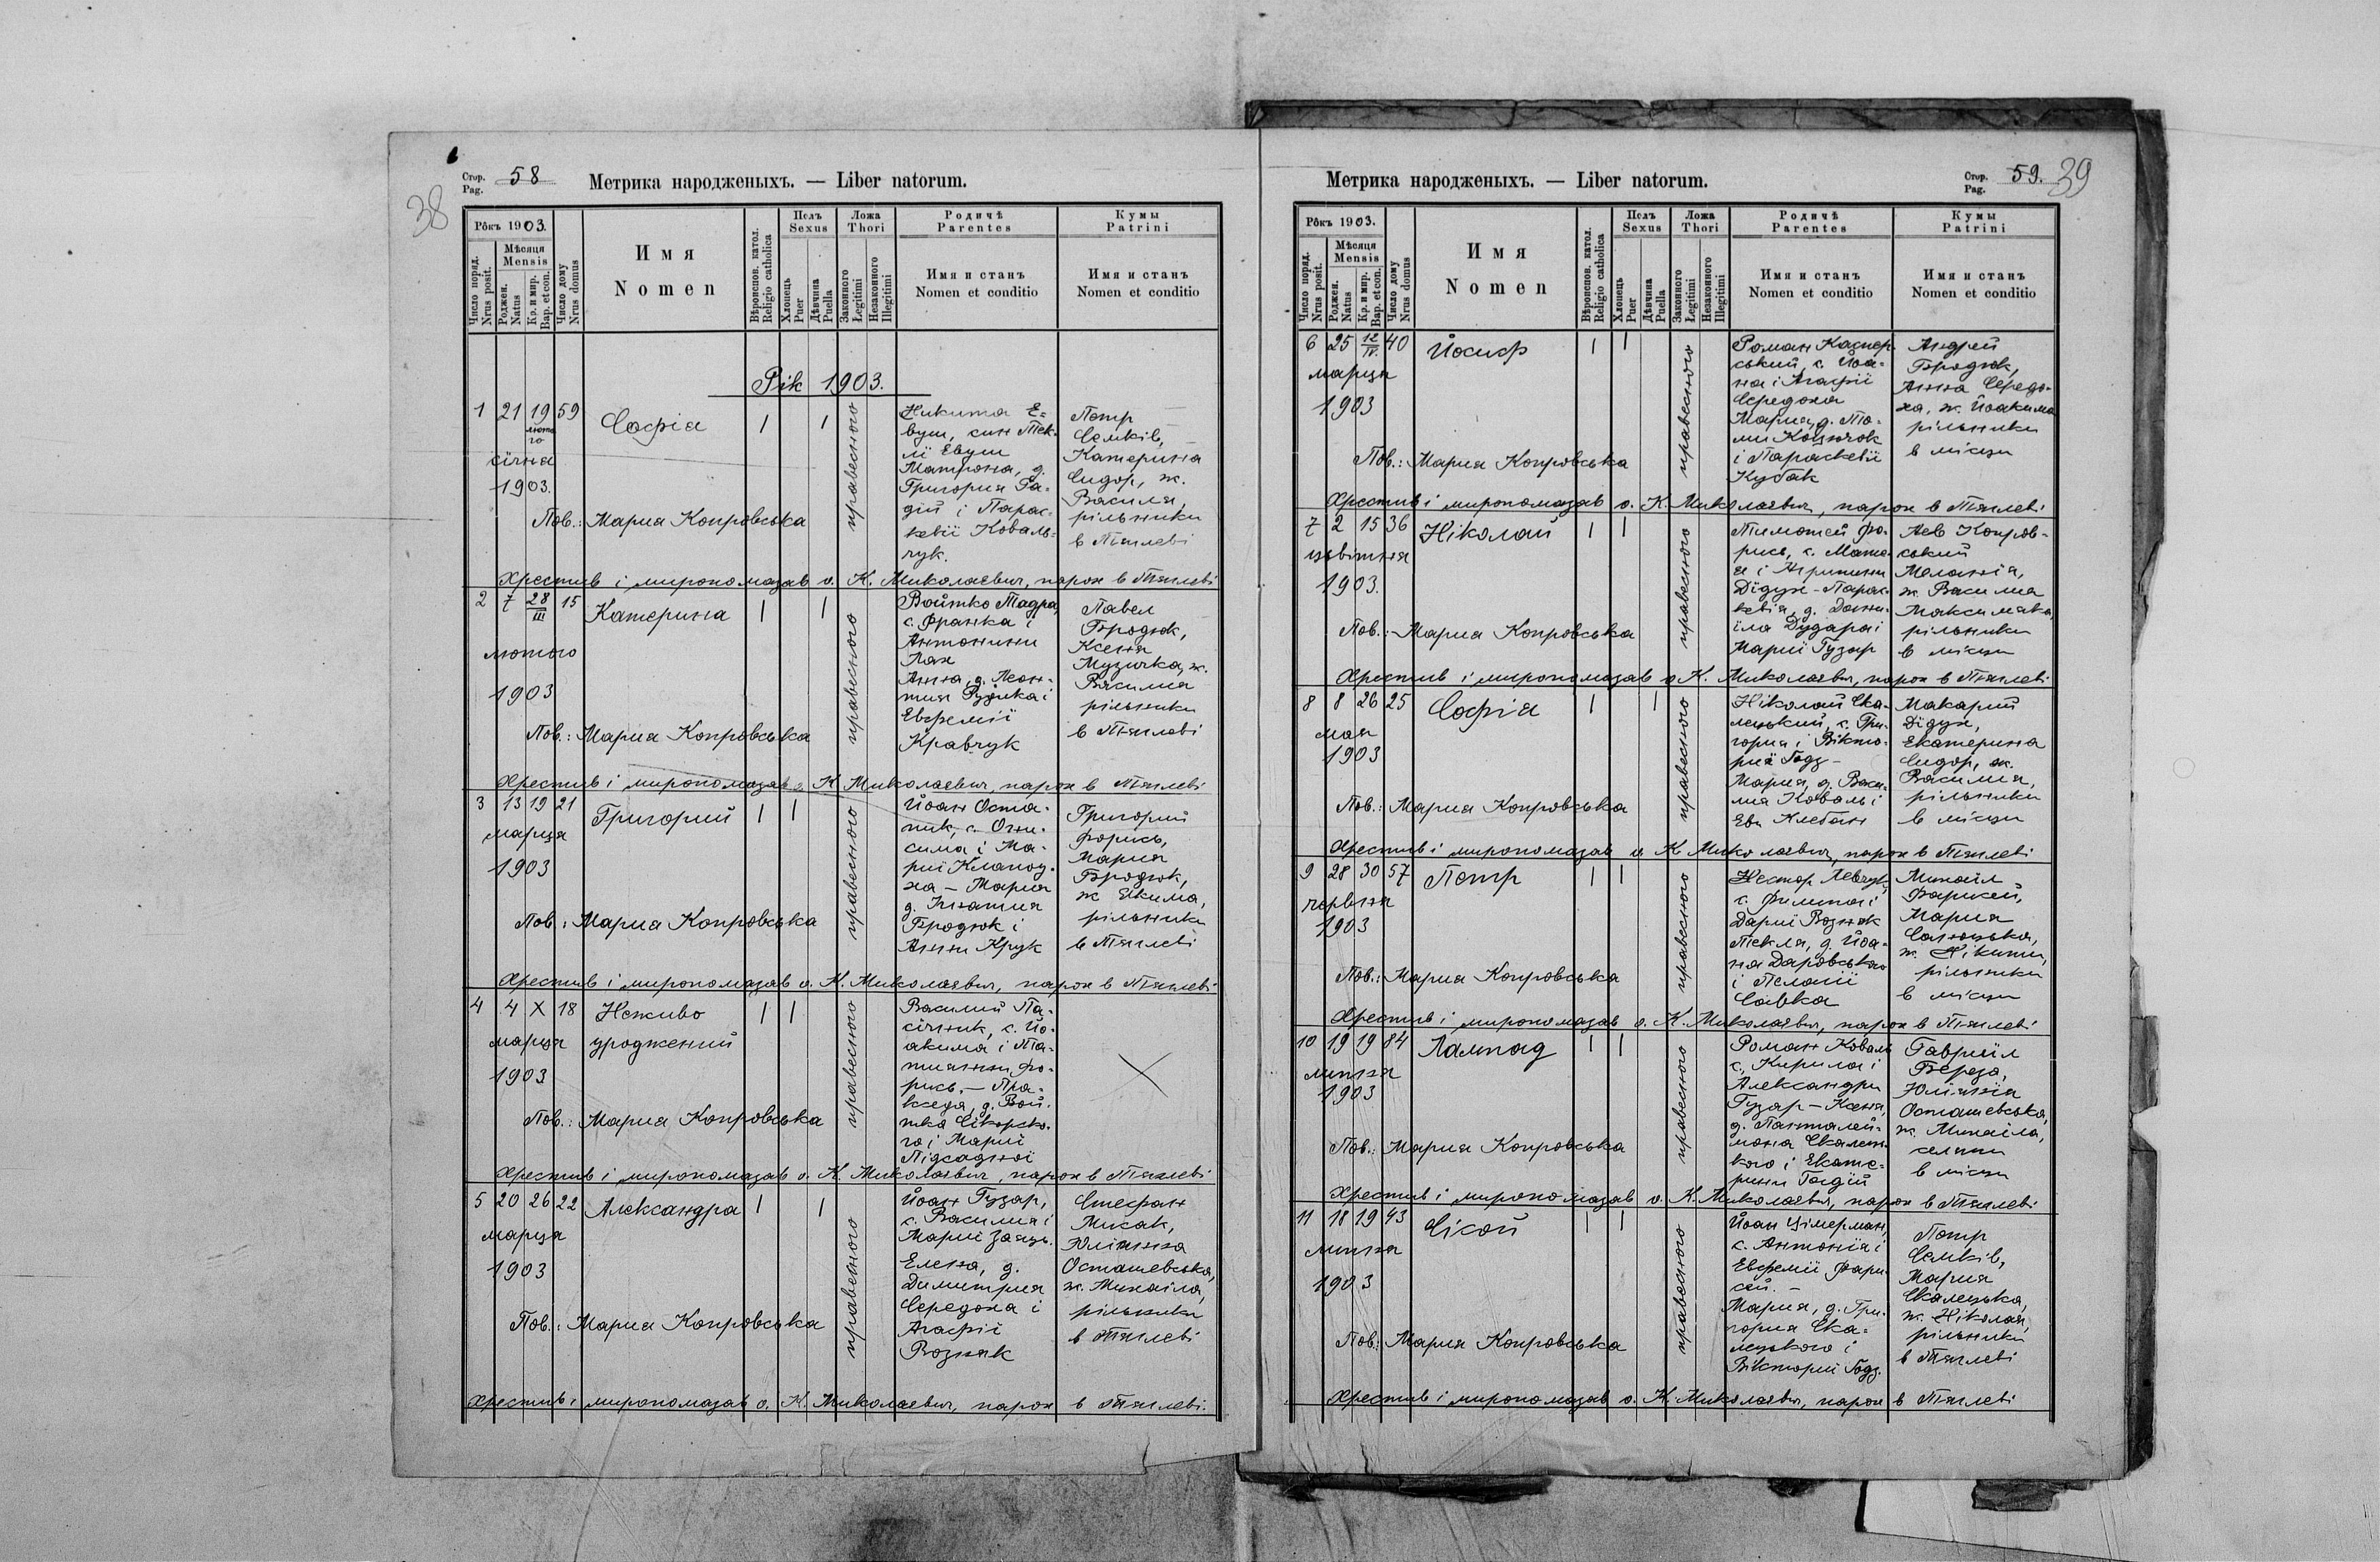 38
Стор.
Pag.
58
Метрика народженыхъ. — Liber natorum.
Рôкъ 1903.
Число поряд.
Nrus posit.
Мѣсяця
Mensis
Роджен.
Natus
Кр. и мир.
Bap. et con.
Число дому
Nrus domus
Имя
Nomen
Вѣроиспов. катол.
Religio catholica
Полъ
Sexus
Хлопець
Puer
Дѣвчина
Puella
Ложа
Thori
Законного
Legitimi
Незаконного
Illegitimi
Родичѣ
Parentes
Имя и станъ
Nomen et conditio
Кумы
Patrini
Имя и станъ
Nomen et conditio
Рік 1903.
1 21 19 59 Софія
люто
го
січня
1903.
Пов.: Мария Копровська
правесного
Никита Е=
вуш, син Тек-
лї Евуш
Матрона, д.
Григория Га-
дій і Парас-
кевії Коваль-
чук.
Петр
Семків,
Катерина
Сидор, ж.
Василя,
рільники
в Тяглеві
Хрестив і миропомазав о. К. Миколаевич, парох в Тяглеві
2 7 28/III 15 Катерина
лютого
1903
Пов.: Мария Копровська
правесного
Войтко Тадра,
с. Франка і
Антонини
Лах
Анна, д. Леон-
тия Рудика і
Евфемії
Кравчук
Павел
Бродюк,
Ксеня
Музичка, ж.
Василия
рільники
в Тяглеві
Хрестив і миропомазав о. К. Миколаевич, парох в Тяглеві
3 13 19 21 Григорий
марця
1903
Пов.: Мария Копровська
правесного
Йоан Оста-
пик, с. Они-
сима і Ма-
риї Клапоу-
ха - Мария
д. Ігнатия
Бродюк і
Анни Крук
Григорий
Форись,
Мария
Бродюк,
ж Екима,
рільники
в Тяглеві
Хрестив і миропомазав о. К. Миколаевич, парох в Тяглеві
4 4 X 18 Неживо
марця уродженный
1903
Пов.: Мария Копровська
правесного
Василий Па-
січник, с. Йо-
акима і Та-
тианни Фо-
рись. - Пра-
кседа, д. Вой-
тка Сікорско-
го і Марії
Підсадної
Хрестив і миропомазав о. К. Миколаевич, парох в Тяглеві
5 20 26 22 Александра
марця
1903
Пов.: Мария Копровська
правесного
Йоан Гузар,
с. Василия і
Марії Заяць.
Елена, д.
Димитрия
Середоха і
Агафії
Возняк
Стефан
Мисак,
Юліянна
Осташевська,
ж. Михаіла,
рільники
в Тяглеві
Хрестив і миропомазав о. К. Миколаевич, парох в Тяглеві.
Метрика народженыхъ. — Liber natorum.
Стор.
Pag.
59.
39
Рôкъ 1903.
Число поряд.
Nrus posit.
Мѣсяця
Mensis
Роджен.
Natus
Кр. и мир.
Bap. et con.
Число дому
Nrus domus
Имя
Nomen
Вѣроиспов. катол.
Religio catholica
Полъ
Sexus
Хлопець
Puer
Дѣвчина
Puella
Ложа
Thori
Законного
Legitimi
Незаконного
Illegitimi
Родичѣ
Parentes
Имя и станъ
Nomen et conditio
Кумы
Patrini
Имя и станъ
Nomen et conditio
6 25 12/IV. 40 Йосиф
марця
1903
Пов.: Мария Копровська
правесного
Роман Каспер-
ський, с. Йоа-
на і Агафії
Середоха
Мария, д. То-
ми
і Параскевії
Кубак
Андрей
Бродюк,
Анна Середо-
ха, ж. Йоакима
рільники
в місци
Хрестив і миропомазав о. К. Миколаевич, парох в Тяглеві
7 2 15 36 Ніколай
цьвітня
1903.
Пов.: Мария Копровська
правесного
Тимотей Фо-
рись, с. Мате-
я і Ягрипини
Дідух - Парас-
кевія, д. Дани-
іла Дудара і
Марії Гузар
Лев Копров-
ський
Меланія,
ж Василия
Максимяка,
рільники
в місци
Хрестив і миропомазав о К. Миколаевич, парох в Тяглеві
8 8 26 25 Софія
мая
1903
Пов.: Мария Копровська
правесного
Ніколай Ска-
лецький, с. Гри-
гория і Вікто-
риї Годз -
Мария, д. Васи-
лия Коваль і
Еви Клебан
Макарий
Дідух,
Екатерина
Сидор, ж.
Василия,
рільники
в місци
Хрестив і миропомазав о. К Миколаевич, парох в Тяглеві
9 28 30 57 Петр
червня
1903
Пов.: Мария Копровська
правесного
Нестор Левчук,
с. Филипа і
Дарії Возняк
Текля, д. Йоа-
на Даровського
і Пелагії
Савка
Михаіл
Фарисей,
Мария
ж. Нікити,
рільники
в місци
Хрестив і миропомазав о. К. Миколаевич, парох в Тяглеві
10 19 19 84 Лампад
липня
1903
Пов.: Мария Копровська
правесного
Роман Коваль
с. Кирила і
Александри
Гузар - Ксеня,
д. Пантелей-
мона Скалец-
кого і Екате-
рини Гадїй
Гавриїл
Береза,
Юліянія
Осташевська,
ж. Михаіла,
селяни
в місци
Хрестив і миропомазав о. К. Миколаевич, парох в Тяглеві
11 18 19 43 Сісой
липня
1903
Пов: Мария Копровська
правесного
Йоан Цімерман,
с. Антонія і
Евфемії Фари-
сей. -
Мария, д. Гри-
гория Ска-
лецького і
Вікториї Годз.
Петр
Семків,
Мария
Скалецька,
ж. Ніколая,
рільники
в Тяглеві
Хрестив і миропомазав о. К. Миколаевич, парох в Тяглеві